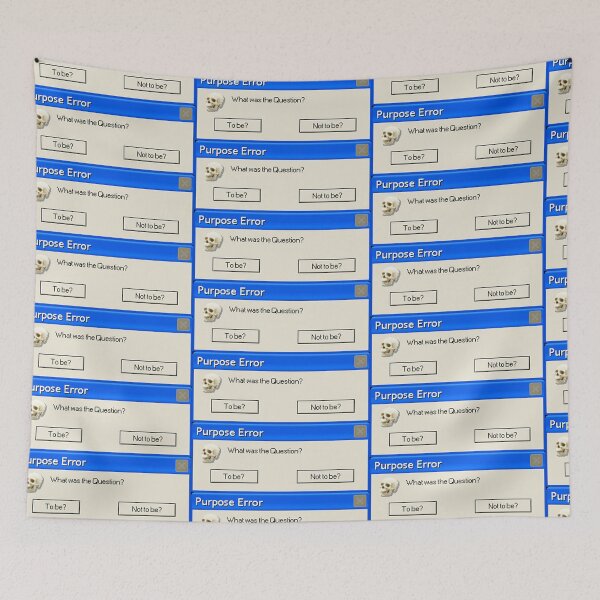 To be? Not to be?
urpose Error
What was the Question?
To be? Not to be?
urpose Error
What was the Question?
To be? Not to be?
urpose Error
What was the Question?
To be? Not to be?
urpose Error
What was the Question?
To be? Not to be?
urpose Error
What was the Question?
To be? Not to be?
urpose Error
What was the Question?
To be? Not to be?
Purpose Error
What was the Question?
To be? Not to be?
Purpose Error
What was the Question?
To be? Not to be?
Purpose Error
What was the Question?
To be? Not to be?
Purpose Error
What was the Question?
To be? Not to be?
Purpose Error
What was the Question?
To be? Not to be?
Purpose Error
What was the Question?
To be? Not to be?
Purpose Error
What was the Question?
To be? Not to be?
Purpose Error
What was the Question?
To be? Not to be?
Purpose Error
What was the Question?
To be? Not to be?
Purpose Error
What was the Question?
To be? Not to be?
Purpose Error
What was the Question?
To be? Not to be?
Purpose Error
What was the Question?
To be? Not to be?
Purpose Error
What was the Question?
To be? Not to be?
Pu
Pu
Pu
Pu
Pu
Pu
Pu